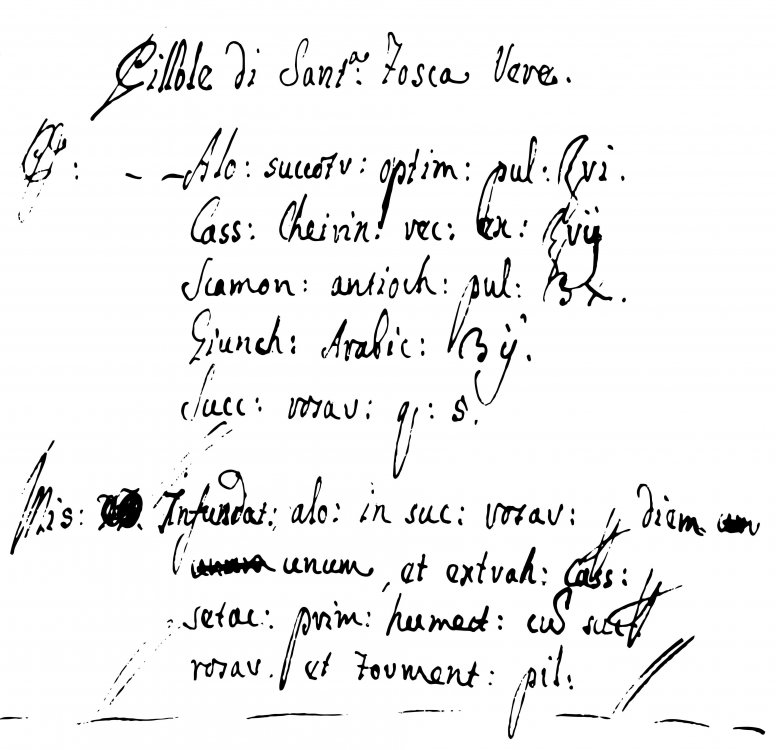 Pillole di Sant.ª Fosca Vere.
℞: - - Alo: succotr: optim: pul: ℥vi.
Cass: Cheirin: rec: ex: ℥vij
Scamon: antioch: pul: ʒx.
Giunch: Arabic: ʒij.
Succ: rosar: q: s.
Mis: Infundat: alo: in suc: rosar: diem
unum, et extrah: Cass:
setac: prim: humect: succ
rosar. et Forment: pil: